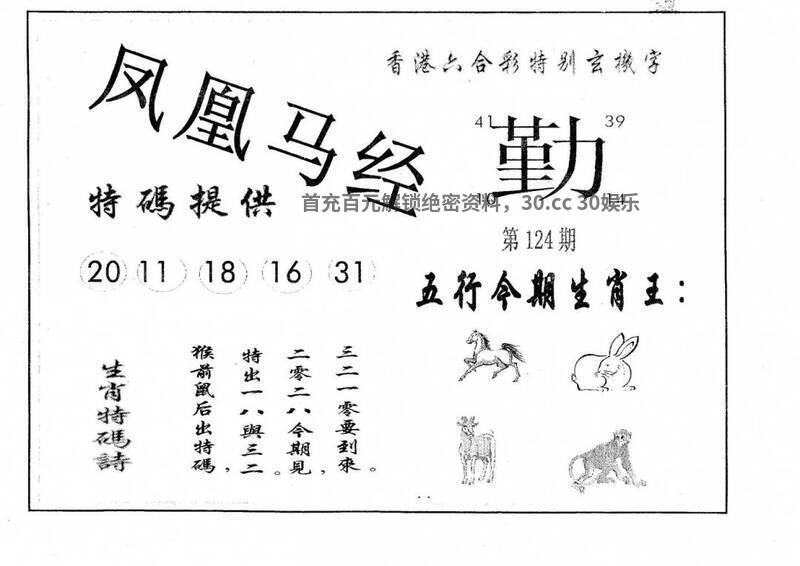 香港六合彩特别玄機字
凤凰马经
41 勤 39
10 14
特碼提供
首充百元解锁绝密资料，30.cc 30娱乐
第124期
20 11 18 16 31
五行今期生肖王：
三二一零要到來。
二零二八今期見，
特出一八與三二。
猴前鼠后出特碼，
生肖特碼詩